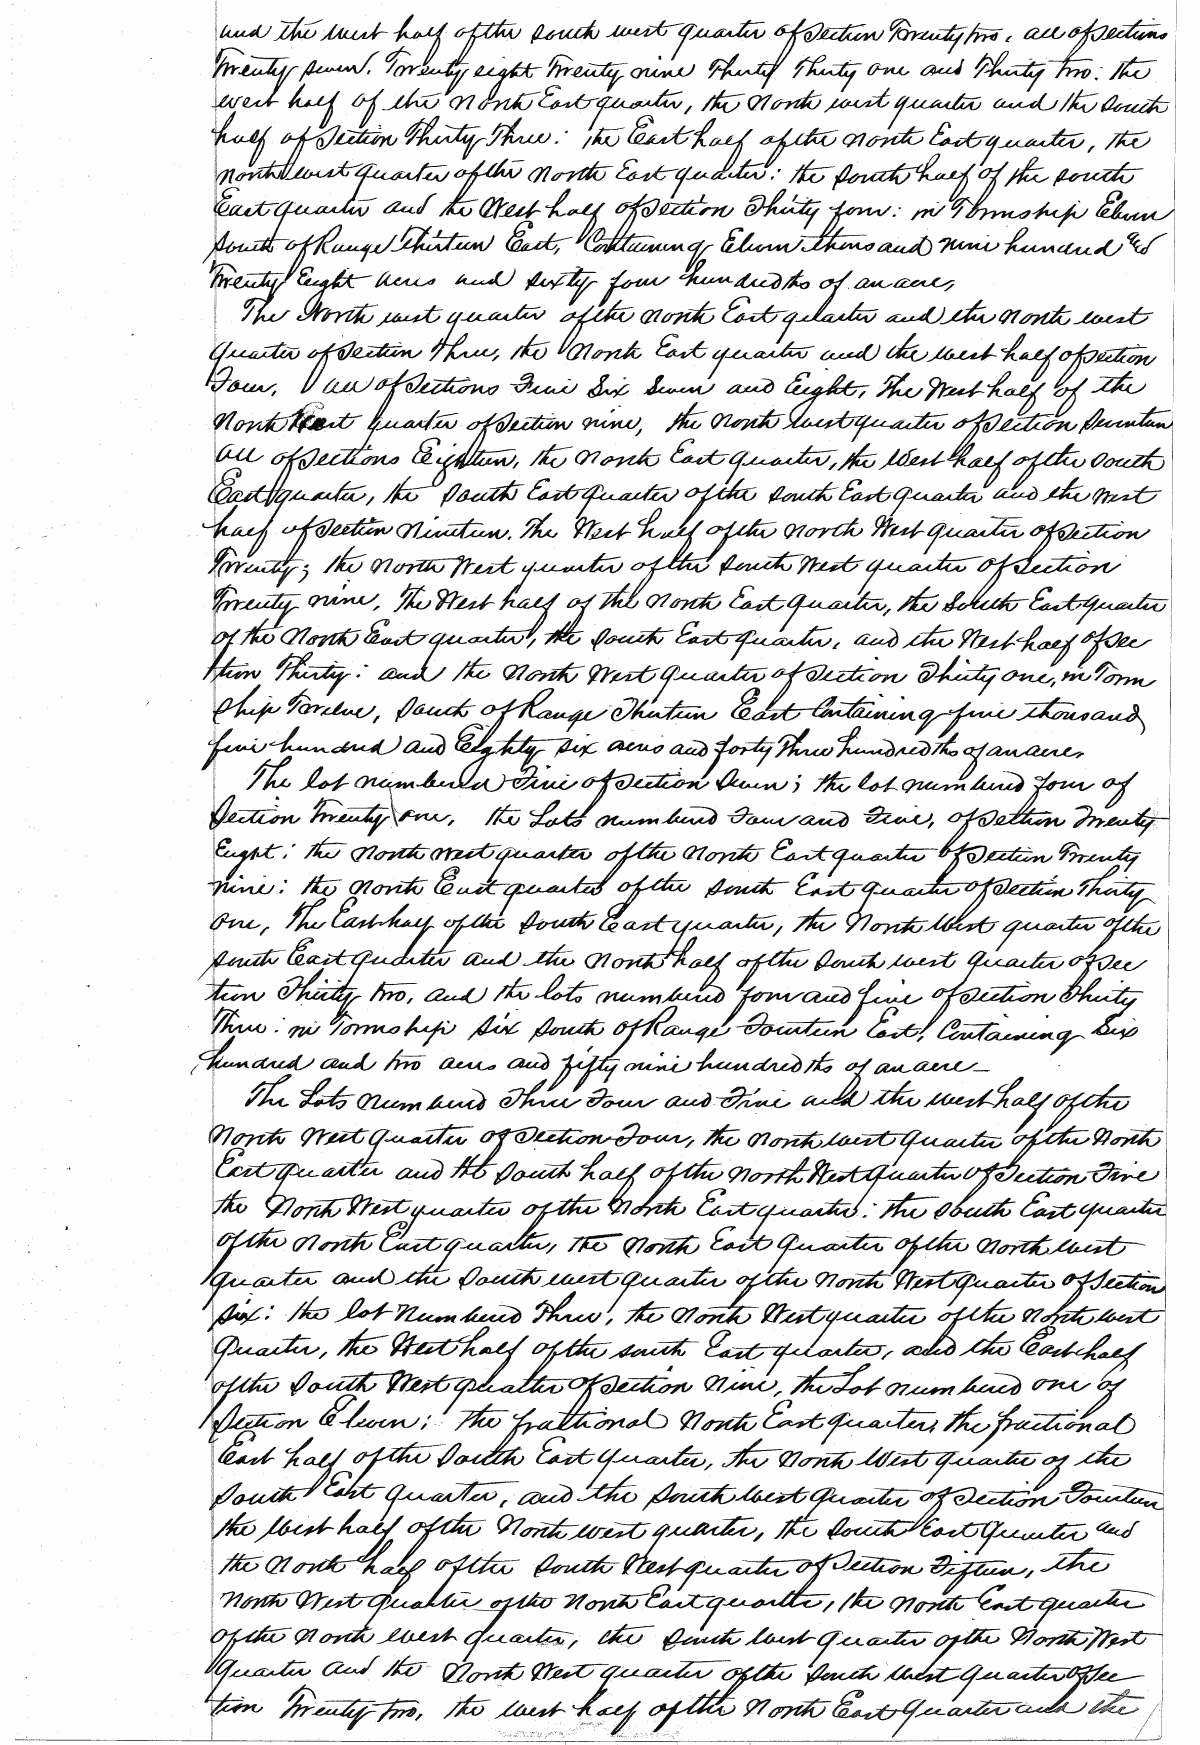 and the west half of the south west quarter of Section Twenty two, all of sections
Twenty seven. Twenty eight Twenty nine Thirty Thirty one and Thirty two: the
west half of the North East quarter, the North west quarter and the south
half of Section Thirty Three: the East half of the North East quarter, the
north west quarter of the North East quarter: the south half of the south
East quarter and the West half of Section Thirty four: in Township Eleven
south of Range Thirteen East, Containing Eleven thousand nine hundred and
Twenty Eight acres and sixty four hundredths of an acre,
The North west quarter of the North East quarter and the North west
quarter of Section Three, the North East quarter and the west half of section
Four, all of Sections Five Six Seven and Eight, The West half of the
North West quarter of Section nine, the North west quarter of Section Seventeen
all of Sections Eighteen, the North East quarter, the West half of the South
East quarter, the South East quarter of the South East quarter and the West
half of Section Nineteen. The West half of the North West quarter of Section
Twenty; the North West quarter of the South West quarter of Section
Twenty nine, The West half of the North East quarter, the South East quarter
of the North East quarter, the South East quarter, and the West half of Sec
tion Thirty: and the North West quarter of Section Thirty one, in Town
ship Twelve, South of Range Thirteen East Containing five thousand
five hundred and Eighty six acres and forty Three hundredths of an acre,
The lot numbered Five of Section Seven; the lot numbered four of
Section Twenty one, the Lots numbered Four and Five, of Section Twenty
Eight: the North West quarter of the North East quarter of Section Twenty
nine: the North East quarter of the South East quarter of Section Thirty
one, The East half of the South East quarter, the North West quarter of the
South East quarter and the North half of the South west quarter of Sec
tion Thirty two, and the lots numbered four and five of Section Thirty
Three: in Township Six South of Range Fourteen East, Containing Six
hundred and two acres and fifty nine hundredths of an acre_
The Lots numbered Three Four and Five and the west half of the
North West quarter of Section Four, the North west quarter of the North
East quarter and the South half of the North West quarter of Section Five
the North West quarter of the North East quarter: the South East quarter
of the North East quarter, the North East quarter of the North West
quarter and the South west quarter of the North West quarter of Section
six: the lot Numbered Three, the North West quarter of the North West
quarter, the West half of the south East quarter, and the East half
of the South West quarter of Section Nine, the Lot numbered one of
Section Eleven; the fractional North East quarter, the fractional
East half of the South East quarter, the North West quarter of the
South East quarter, and the South West quarter of Section Fourteen
the West half of the North west quarter, the South East quarter and
the North half of the South West quarter of Section Fifteen, the
North West quarter of the North East quarter, the North East quarter
of the North West quarter, the South West quarter of the North West
quarter and the North West quarter of the South West quarter of Sec
tion Twenty two, the west half of the North East quarter and the